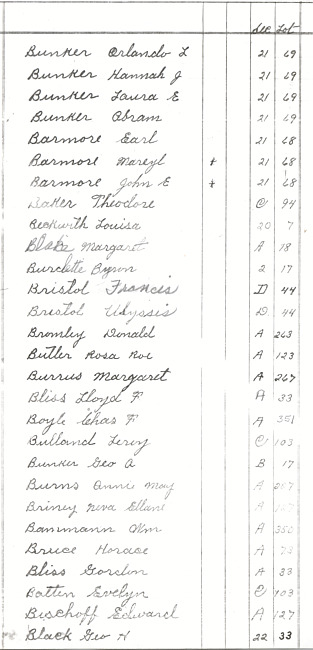 Sec Lot
Bunker Orlando L 21 69
Bunker Hannah J 21 69
Bunker Laura E 21 69
Bunker Abram 21 69
Barmore Earl 21 68
Barmore Mareyl + 21 68
Barmore John E + 21 68
Baker Theodore C 94
Beckwith Louisa 20 7
Blake Margaret A 18
Burdette Byron 2 17
Bristol Francis D 44
Bristol Ulyssis D 44
Bromley Donald A 263
Butler Rosa Roe A 123
Burrus Margaret A 267
Bliss Lloyd F A 33
Boyle Chas F A 351
Bulland Leroy C 103
Bunker Geo A B 17
Burns Annie May A
Briney Neva Ellane A
Bammann Wm A 350
Bruce Horace A
Bliss Gordon A 33
Batten Evelyn C 103
Bischoff Edward A 127
Black Geo H 22 33